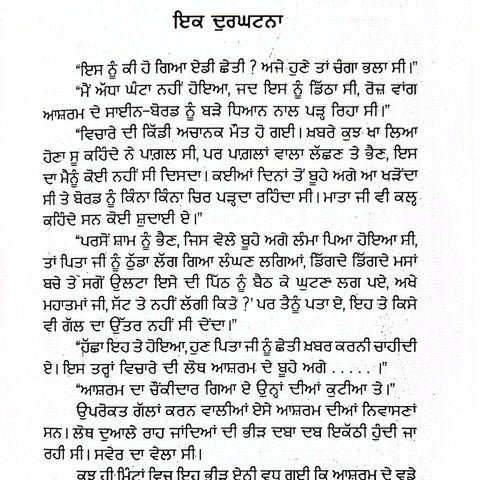 ਇਕ ਦੁਰਘਟਨਾ
“ਇਸ ਨੂੰ ਕੀ ਹੋ ਗਿਆ ਏਡੀ ਛੇਤੀ ? ਅਜੇ ਹੁਣੇ ਤਾਂ ਚੰਗਾ ਭਲਾ ਸੀ।”
“ਮੈਂ ਅੱਧਾ ਘੰਟਾ ਨਹੀਂ ਹੋਇਆ, ਜਦ ਇਸ ਨੂੰ ਡਿੱਠਾ ਸੀ, ਰੋਜ਼ ਵਾਂਗ
ਆਸ਼ਰਮ ਦੇ ਸਾਈਨ-ਬੋਰਡ ਨੂੰ ਬੜੇ ਧਿਆਨ ਨਾਲ ਪੜ੍ਹ ਰਿਹਾ ਸੀ।”
“ਵਿਚਾਰੇ ਦੀ ਕਿੱਡੀ ਅਚਾਨਕ ਮੌਤ ਹੋ ਗਈ। ਖ਼ਬਰੇ ਕੁਝ ਖਾ ਲਿਆ
ਹੋਣਾ ਸੂ ਕਹਿੰਦੇ ਨੇ ਪਾਗ਼ਲ ਸੀ, ਪਰ ਪਾਗ਼ਲਾਂ ਵਾਲਾ ਲੱਛਣ ਤੇ ਭੈਣ, ਇਸ
ਦਾ ਮੈਨੂੰ ਕੋਈ ਨਹੀਂ ਸੀ ਦਿਸਦਾ। ਕਈਆਂ ਦਿਨਾਂ ਤੋਂ ਬੂਹੇ ਅਗੇ ਆ ਖੜੋਂਦਾ
ਸੀ ਤੇ ਬੋਰਡ ਨੂੰ ਕਿੰਨਾ ਕਿੰਨਾ ਚਿਰ ਪੜ੍ਹਦਾ ਰਹਿੰਦਾ ਸੀ। ਮਾਤਾ ਜੀ ਵੀ ਕਲ੍ਹ
ਕਹਿੰਦੇ ਸਨ ਕੋਈ ਸ਼ੁਦਾਈ ਏ।”
“ਪਰਸੋਂ ਸ਼ਾਮ ਨੂੰ ਭੈਣ, ਜਿਸ ਵੇਲੇ ਬੂਹੇ ਅਗੇ ਲੰਮਾ ਪਿਆ ਹੋਇਆ ਸੀ,
ਤਾਂ ਪਿਤਾ ਜੀ ਨੂੰ ਠੁੱਡਾ ਲੱਗ ਗਿਆ ਲੰਘਣ ਲਗਿਆਂ, ਡਿੱਗਦੇ ਡਿੱਗਦੇ ਮਸਾਂ
ਬਚੇ ਤੇ ਸਗੋਂ ਉਲਟਾ ਇਸੇ ਦੀ ਪਿੱਠ ਨੂੰ ਬੈਠ ਕੇ ਘੁਟਣ ਲਗ ਪਏ, ਅਖੇ
ਮਹਾਤਮਾਂ ਜੀ, ਸੱਟ ਤੇ ਨਹੀਂ ਲੱਗੀ ਕਿਤੇ ?’ ਪਰ ਤੈਨੂੰ ਪਤਾ ਏ, ਇਹ ਤੇ ਕਿਸੇ
ਵੀ ਗੱਲ ਦਾ ਉੱਤਰ ਨਹੀਂ ਸੀ ਦੇਂਦਾ।”
“ਹੱਛਾ ਇਹ ਤੇ ਹੋਇਆ, ਹੁਣ ਪਿਤਾ ਜੀ ਨੂੰ ਛੇਤੀ ਖ਼ਬਰ ਕਰਨੀ ਚਾਹੀਦੀ
ਏ। ਇਸ ਤਰ੍ਹਾਂ ਵਿਚਾਰੇ ਦੀ ਲੋਥ ਆਸ਼ਰਮ ਦੇ ਬੂਹੇ ਅਗੇ . . . . . ।”
“ਆਸ਼ਰਮ ਦਾ ਚੌਕੀਦਾਰ ਗਿਆ ਏ ਉਨ੍ਹਾਂ ਦੀਆਂ ਕੁਟੀਆ ਤੇ।”
ਉਪਰੋਕਤ ਗੱਲਾਂ ਕਰਨ ਵਾਲੀਆਂ ਏਸੇ ਆਸ਼ਰਮ ਦੀਆਂ ਨਿਵਾਸਣਾਂ
ਸਨ। ਲੋਥ ਦੁਆਲੇ ਰਾਹ ਜਾਂਦਿਆਂ ਦੀ ਭੀੜ ਦਬਾ ਦਬ ਇਕੱਠੀ ਹੁੰਦੀ ਜਾ
ਰਹੀ ਸੀ। ਸਵੇਰ ਦਾ ਵੇਲਾ ਸੀ।
ਕੁਝ ਹੀ ਮਿੰਟਾਂ ਵਿਚ ਇਹ ਭੀੜ ਏਨੀ ਵਧ ਗਈ ਕਿ ਆਸ਼ਰਮ ਦੇ ਵਡੇ